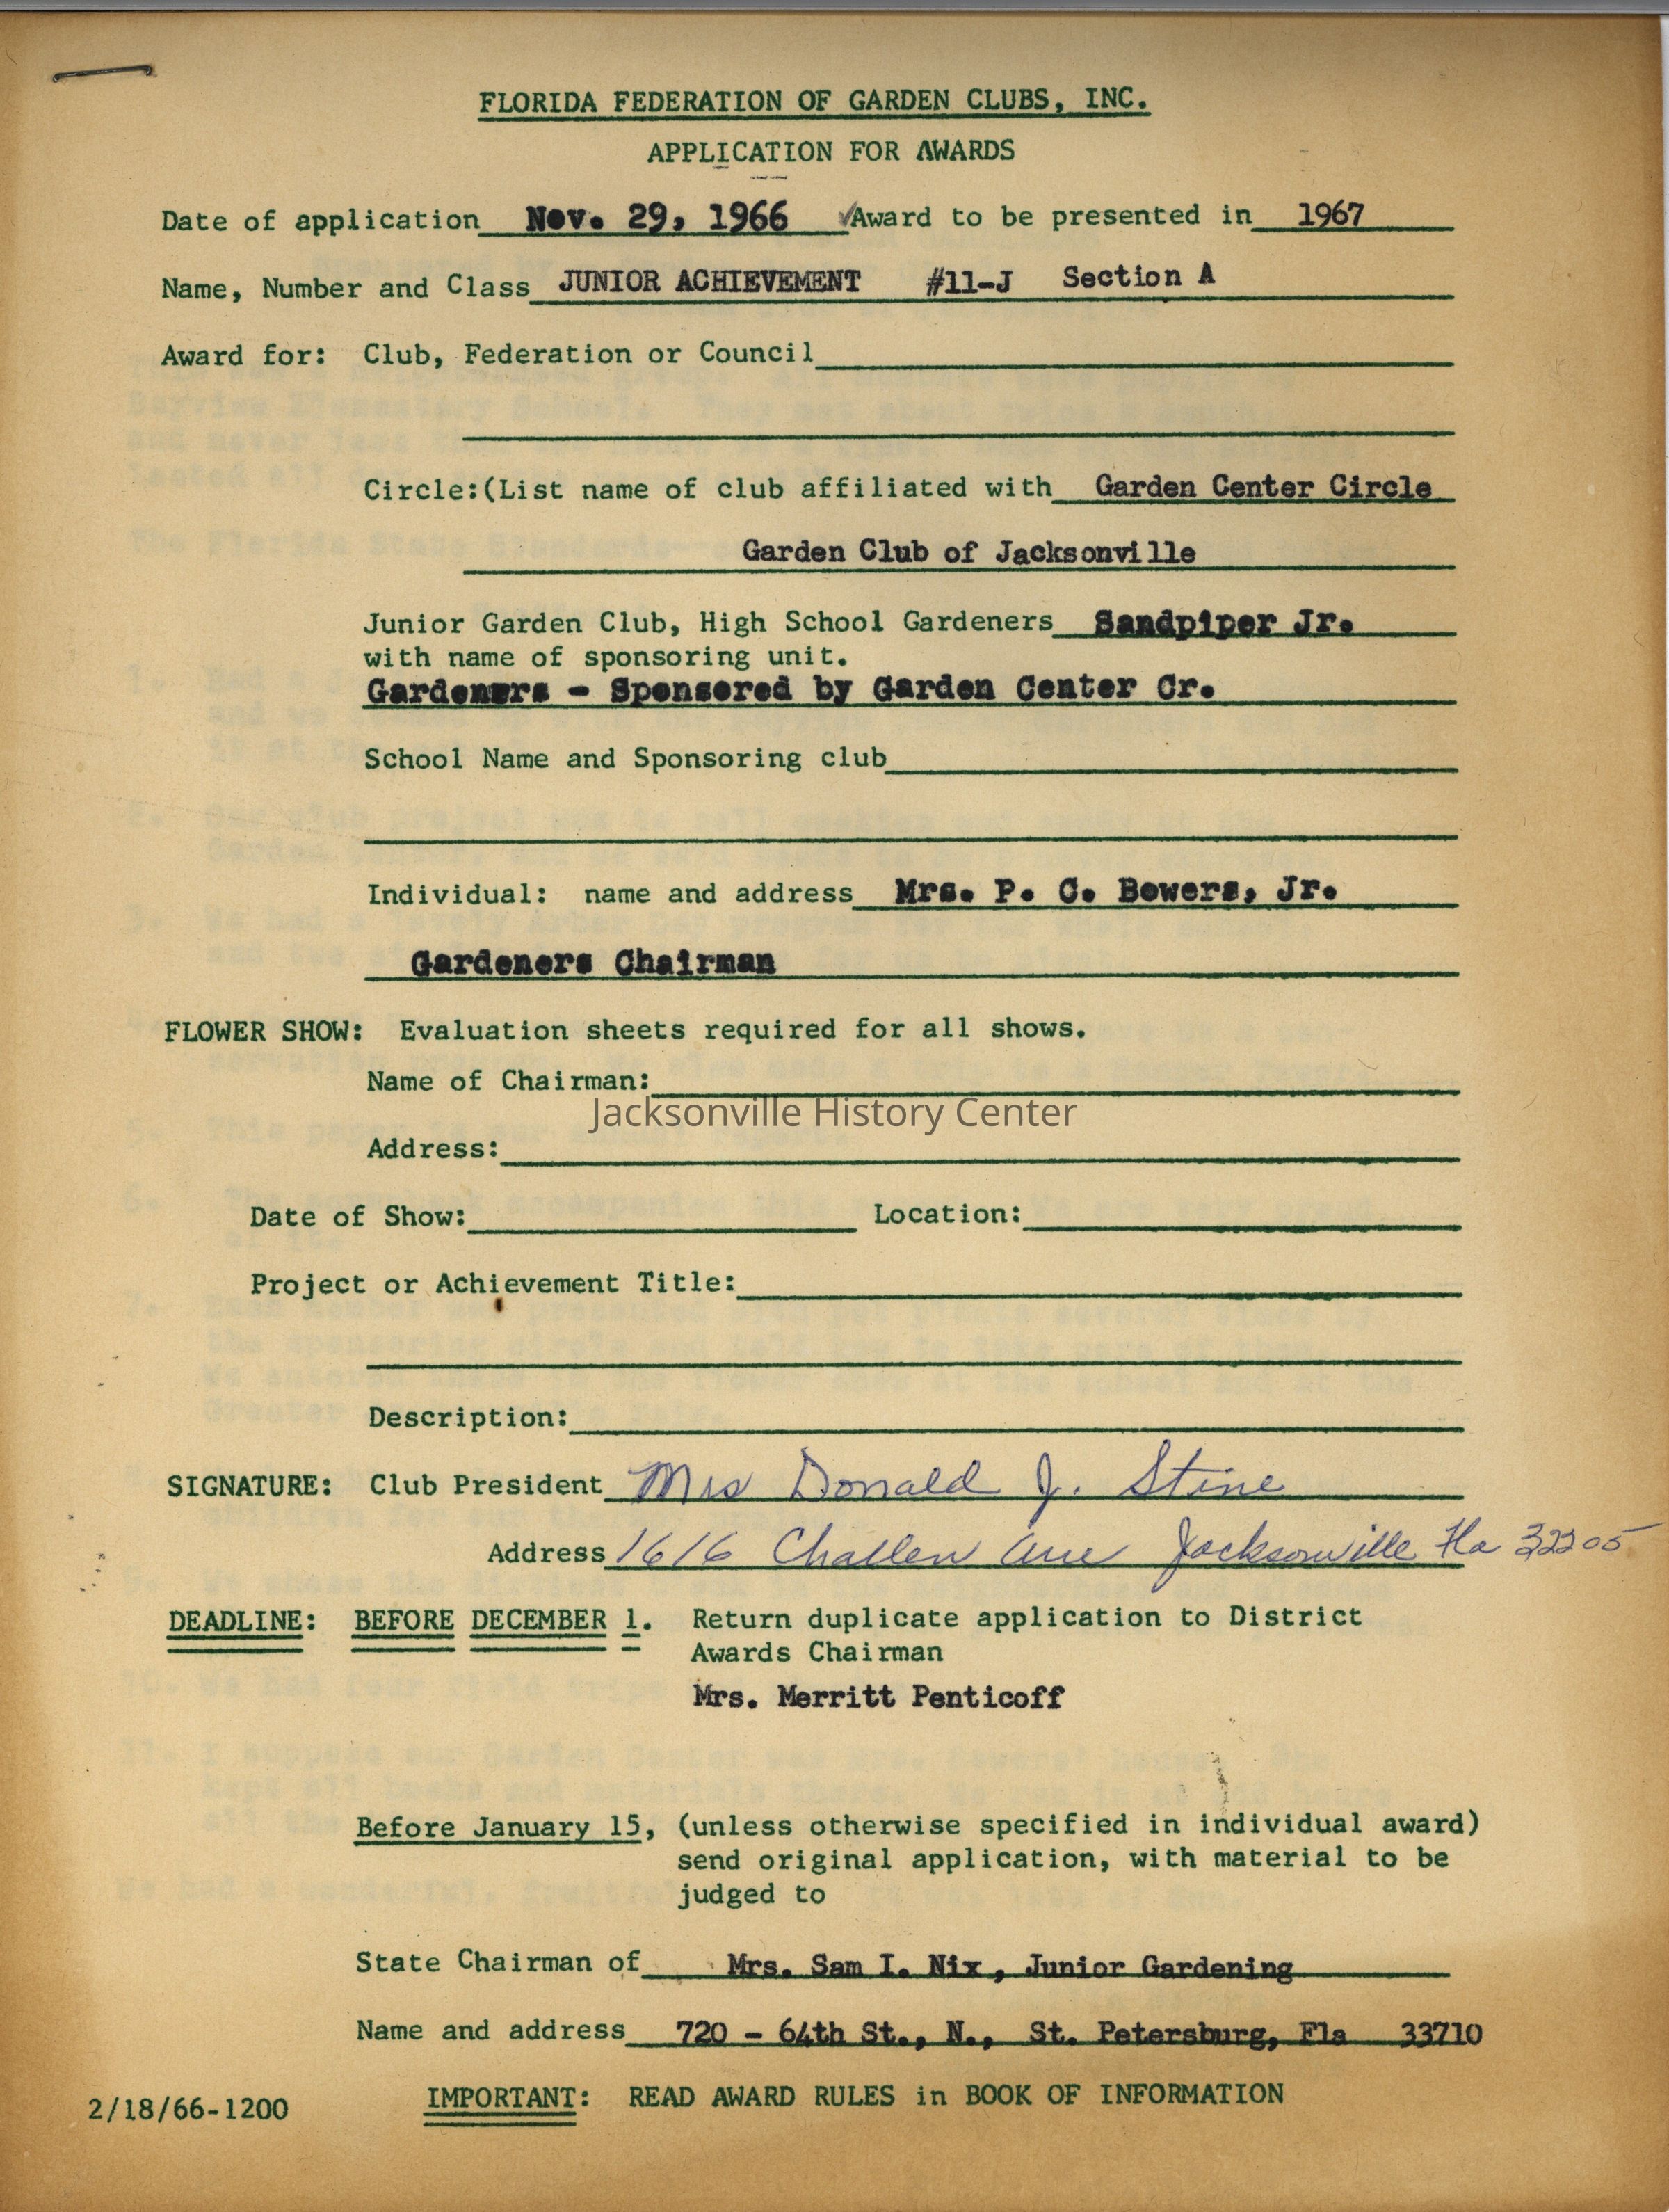 FLORIDA FEDERATION OF GARDEN CLUBS, INC.
APPLICATION FOR AWARDS
Date of application Nov. 29, 1966 ✓Award to be presented in 1967
Name, Number and Class JUNIOR ACHIEVEMENT #11-J Section A
Award for: Club, Federation or Council
Circle:(List name of club affiliated with Garden Center Circle
Garden Club of Jacksonville
Junior Garden Club, High School Gardeners Sandpiper Jr.
with name of sponsoring unit.
Gardeners - Sponsored by Garden Center Cr.
School Name and Sponsoring club
Individual: name and address Mrs. P. C. Bowers, Jr.
Gardeners Chairman
FLOWER SHOW: Evaluation sheets required for all shows.
Name of Chairman:
Jacksonville History Center
Address:
Date of Show: Location:
Project or Achievement Title:
Description:
SIGNATURE: Club President Mrs Donald J. Stine
Address 1616 Challen Ave Jacksonville Fla 32205
DEADLINE: BEFORE DECEMBER 1. Return duplicate application to District
Awards Chairman
Mrs. Merritt Penticoff
Before January 15, (unless otherwise specified in individual award)
send original application, with material to be
judged to
State Chairman of Mrs. Sam I. Nix, Junior Gardening
Name and address 720 - 64th St., N., St. Petersburg, Fla 33710
2/18/66-1200 IMPORTANT: READ AWARD RULES in BOOK OF INFORMATION